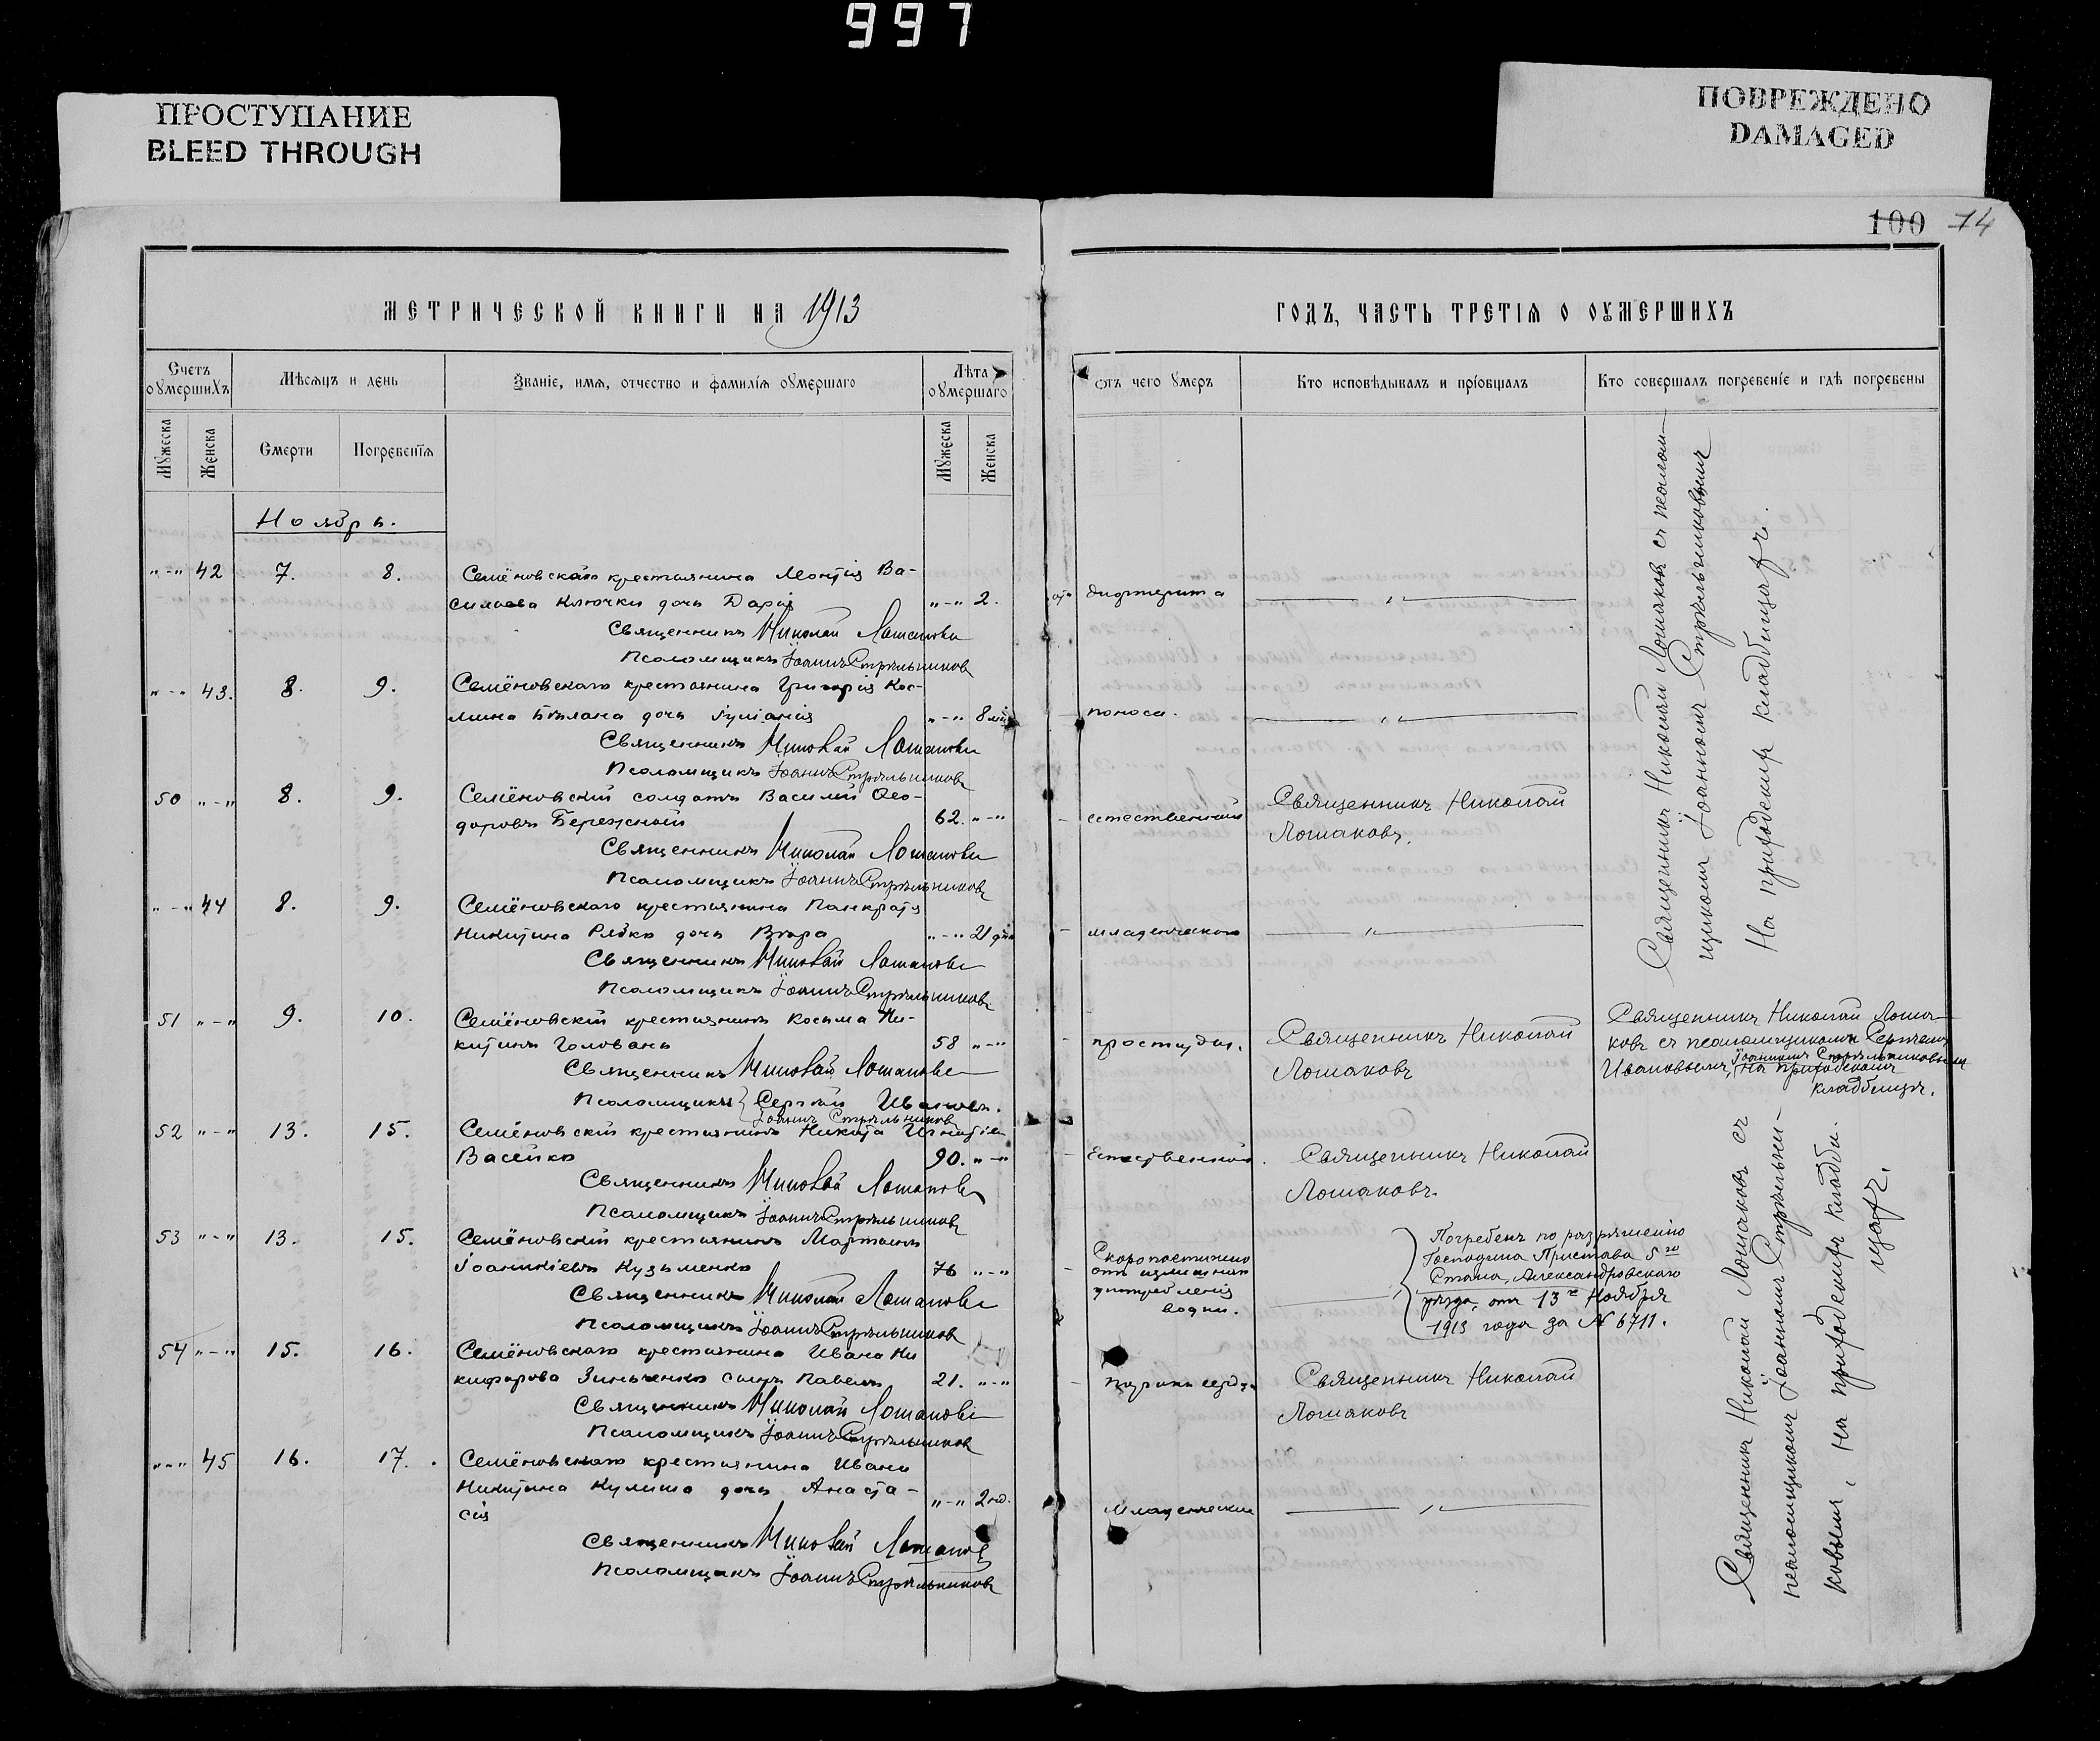 997
ПРОСТУПАНИЕ
BLEED THROUGH
ПОВРЕЖДЕНО
DAMAGED
100 74
МЕТРИЧЕСКОЙ КНИГИ НА 1913
ГОДЪ, ЧАСТЬ ТРЕТІЯ О ОУМЕРШИХЪ
Счетъ оумершихъ
Мѣсяцъ и день
Званіе, имя, отчество и фамилія оумершаго
Лѣта оумершаго
Отъ чего умеръ
Кто исповѣдывалъ и пріобщалъ
Кто совершалъ погребеніе и гдѣ погребены
Мужеска
Женска
Смерти
Погребенія
Мужеска
Женска
Ноябрь.
"-" 42 7. 8. Семёновскаго крестьянина Монтія Ва-
сильева Ключки дочь Дарія "-" 2. дифтерита — " —
Священникъ Николай Лошаковъ
Псаломщикъ Іоаннъ Стрѣльниковъ
"-" 43. 8. 9. Семёновскаго крестьянина Григорія Кос-
мина Бѣлана дочь Іуліанія "-" 8 поноса. — " —
Священникъ Николай Лошаковъ
Псаломщикъ Іоаннъ Стрѣльниковъ
50 "-" 8. 9. Семёновскій солдатъ Василій Ѳео-
доровъ Бережной 62. "-" естественной Священникъ Николай
Лошаковъ.
Священникъ Николай Лошаковъ
Псаломщикъ Іоаннъ Стрѣльниковъ
"-" 44 8. 9. Семёновскаго крестьянина Панкратія
Никитина Рябко дочь Вѣра "-" 21 дня младенческою — " —
Священникъ Николай Лошаковъ
Псаломщикъ Іоаннъ Стрѣльниковъ
Священникъ Николай Лошаковъ съ псалом-
щикомъ Іоанномъ Стрѣльниковымъ
На приходскихъ кладбищахъ.
51 "-" 9. 10. Семёновскій крестьянинъ Косьма Ни-
китинъ Головань 58 "-" простуды. Священникъ Николай
Лошаковъ
Священникъ Николай Лоша-
ковъ съ псаломщикомъ Сергѣемъ
Іоанномъ Стрѣльниковымъ
Ивановымъ, На приходскомъ
кладбищѣ.
Священникъ Николай Лошаковъ
Псаломщики Сергѣй Ивановъ.
Іоаннъ Стрѣльниковъ
52 "-" 13. 15. Семёновскій крестьянинъ Никита Игнатіевъ
Васейко 90. "-" Естественной. Священникъ Николай
Лошаковъ.
Священникъ Николай Лошаковъ
Псаломщикъ Іоаннъ Стрѣльниковъ
53 "-" 13. 15. Семёновскій крестьянинъ Мартинъ
Іоанникіевъ Кузьменко 76 "-"
Скоропостижно
отъ излишняго
употребленія
водки.
Погребенъ по разрѣшенію
Господина Пристава 5го
Стана, Александровскаго
уѣзда, отъ 13го Ноября
1913 года за № 6711.
Священникъ Николай Лошаковъ
Псаломщикъ Іоаннъ Стрѣльниковъ
54 "-" 15. 16. Семёновскаго крестьянина Ивана Ни
кифорова Зинченко сынъ Павелъ 21. "-" Порокъ сердца Священникъ Николай
Лошаковъ
Священникъ Николай Лошаковъ
Псаломщикъ Іоаннъ Стрѣльниковъ
"-" 45 16. 17. Семёновскаго крестьянина Ивана
Никитина Кулиша дочь Анаста-
сія "-" 2 нед. Младенческая — " —
Священникъ Николай Лошаковъ
Псаломщикъ Іоаннъ Стрѣльниковъ
Священникъ Николай Лошаковъ съ
псаломщикомъ Іоанномъ Стрѣльни-
ковымъ, На приходскихъ кладби-
щахъ.